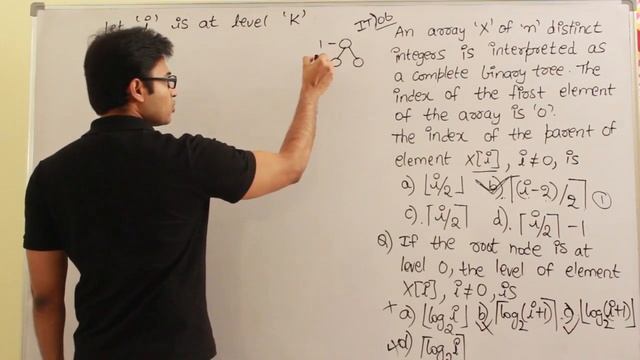 Let 'i' is at level 'K'
IT) 06
1 -
An array 'X' of 'n' distinct
integers is interpreted as
a complete binary tree. The
index of the first element
of the array is '0'.
The index of the parent of
element X[i], i ≠ 0, is
a) ⌊i/2⌋ b) ⌈(i-2)/2⌉ ①
c) ⌈i/2⌉ d) ⌈i/2⌉ - 1
Q) If the root node is at
level 0, the level of element
X[i], i ≠ 0, is
a) ⌊log₂i⌋ b) ⌈log₂(i+1)⌉ c) ⌊log₂(i+1)⌋
d) ⌈log₂i⌉